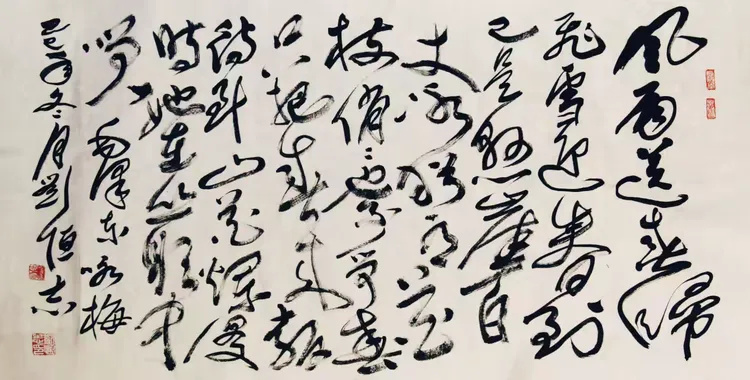 风雨送春歸
飛雪迎春到
已是懸崖百
丈冰猶有花
枝俏〻也不爭春
只把春来報
待到山花爛漫
時她在丛中
笑 毛澤东咏梅
己亥冬月劉恒志